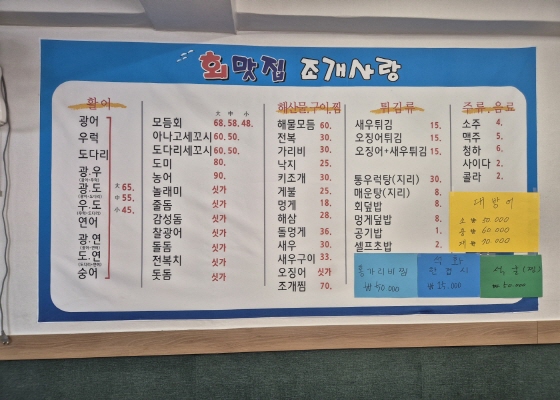 회맛집 조개사랑
활어
광어
우럭
도다리
광.우
(광어+우럭)
광.도
우.도
연어
광.연
도.연
숭어
大 65.
中 55.
小 45.
大 中 小
모듬회 68. 58. 48.
아나고세꼬시 60. 50.
도다리세꼬시 60. 50.
도미 80.
농어 90.
놀래미 싯가
줄돔 싯가
감성돔 싯가
찰광어 싯가
돌돔 싯가
전복치 싯가
돗돔 싯가
해산물,구이,찜
해물모듬 60.
전복 30.
가리비 30.
낙지 25.
키조개 30.
게불 25.
멍게 18.
해삼 28.
돌멍게 36.
새우 30.
새우구이 33.
오징어 싯가
조개찜 70.
튀김류
새우튀김 15.
오징어튀김 15.
오징어+새우튀김 15.
통우럭탕(지리) 30.
매운탕(지리) 8.
회덮밥 8.
멍게덮밥 8.
공기밥 1.
셀프초밥 2.
주류,음료
소주 4.
맥주 5.
청하 6.
사이다 2.
콜라 2.
대방어
소 50.000
중 60.000
대 70.000
홍가리비찜
₩50.000
석화
한접시
₩25.000
석굴(찜)
₩50.000